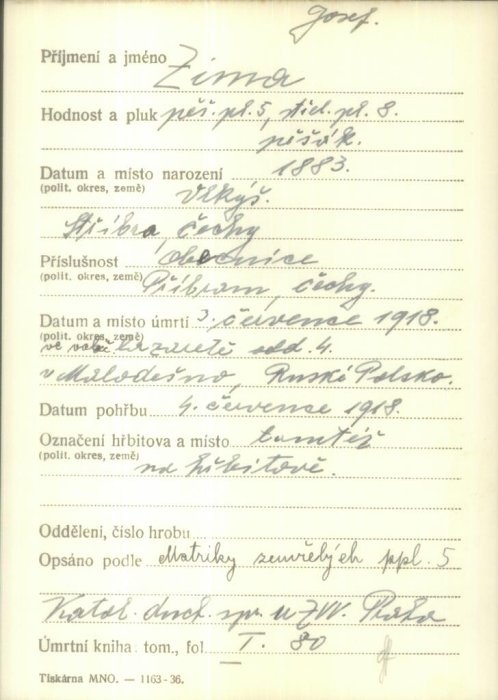 Josef.
Příjmení a jméno Zima
Hodnost a pluk pěš. pl. 5, stiel. pl. 8.
pěšák.
Datum a místo narození 1883.
(polit. okres, země) Vlkýš.
Stříbra, Čechy
Příslušnost Obecnice
(polit. okres, země) Příbram, Čechy.
Datum a místo úmrtí 3. července 1918.
(polit. okres, země)
ve lazaretě odd. 4.
v Malodešno, Ruské Polsko.
Datum pohřbu 4. července 1918.
Označení hřbitova a místo tamtéž
(polit. okres, země) na hřbitově.
Oddělení, číslo hrobu
Opsáno podle Matriky zemřelých ppl. 5
Katol. duch. spr. u ZVV. Praha
Úmrtní kniha: tom., fol. I. 80
Tiskárna MNO. — 1163-36.